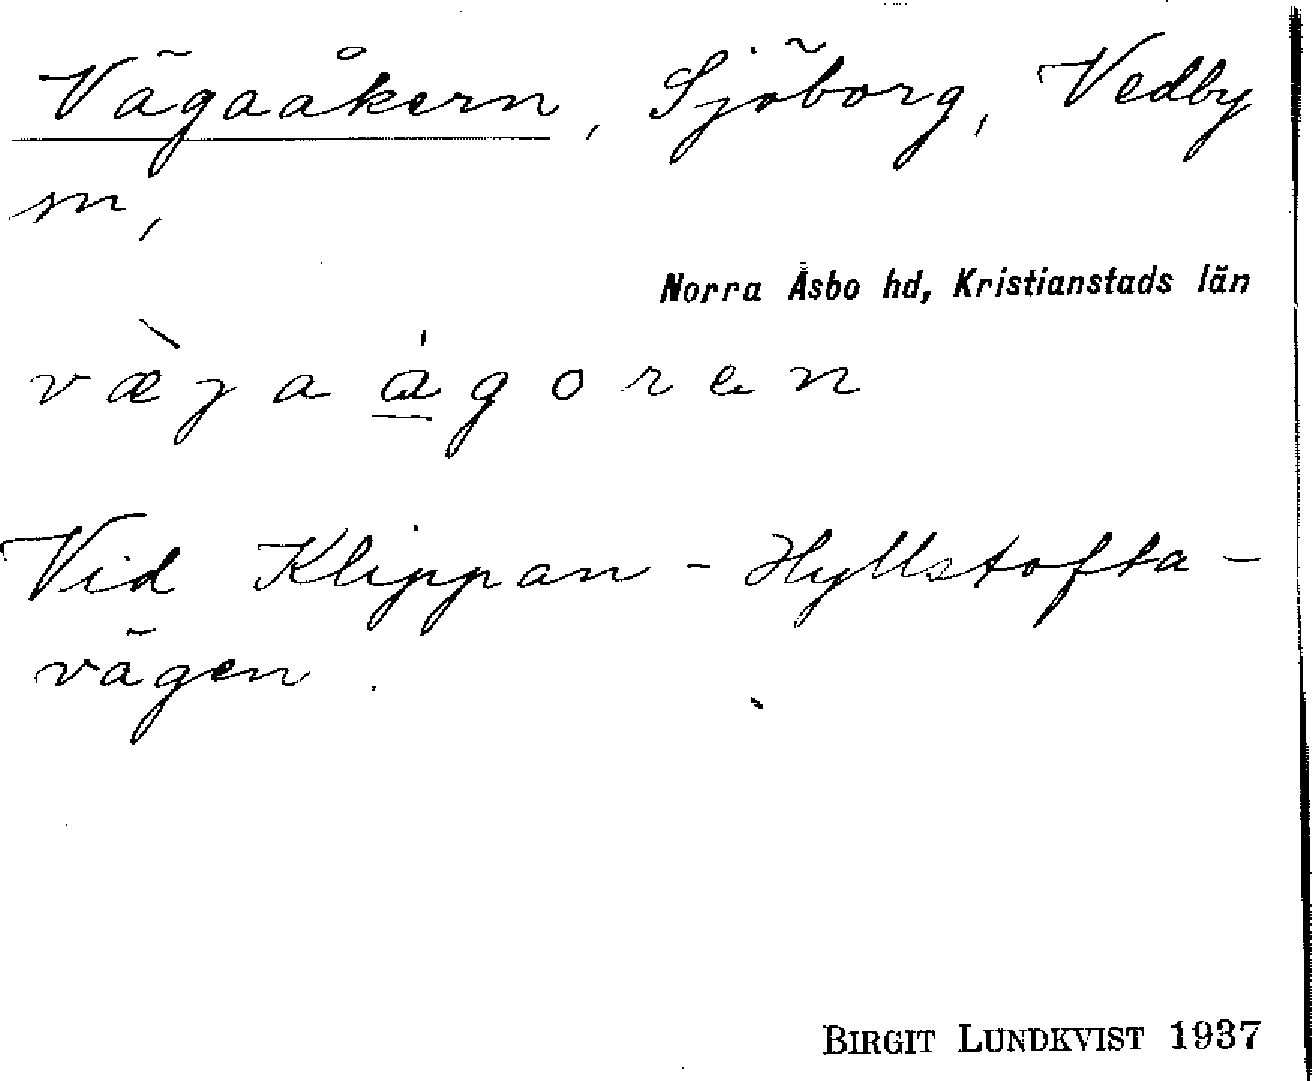 Vägaåkern, Sjöborg, Vedby
sn,
Norra Åsbo hd, Kristianstads län
væ̀ga a̲̍goren
Vid Klippan - Hyllstofta -
vägen.
BIRGIT LUNDKVIST 1937